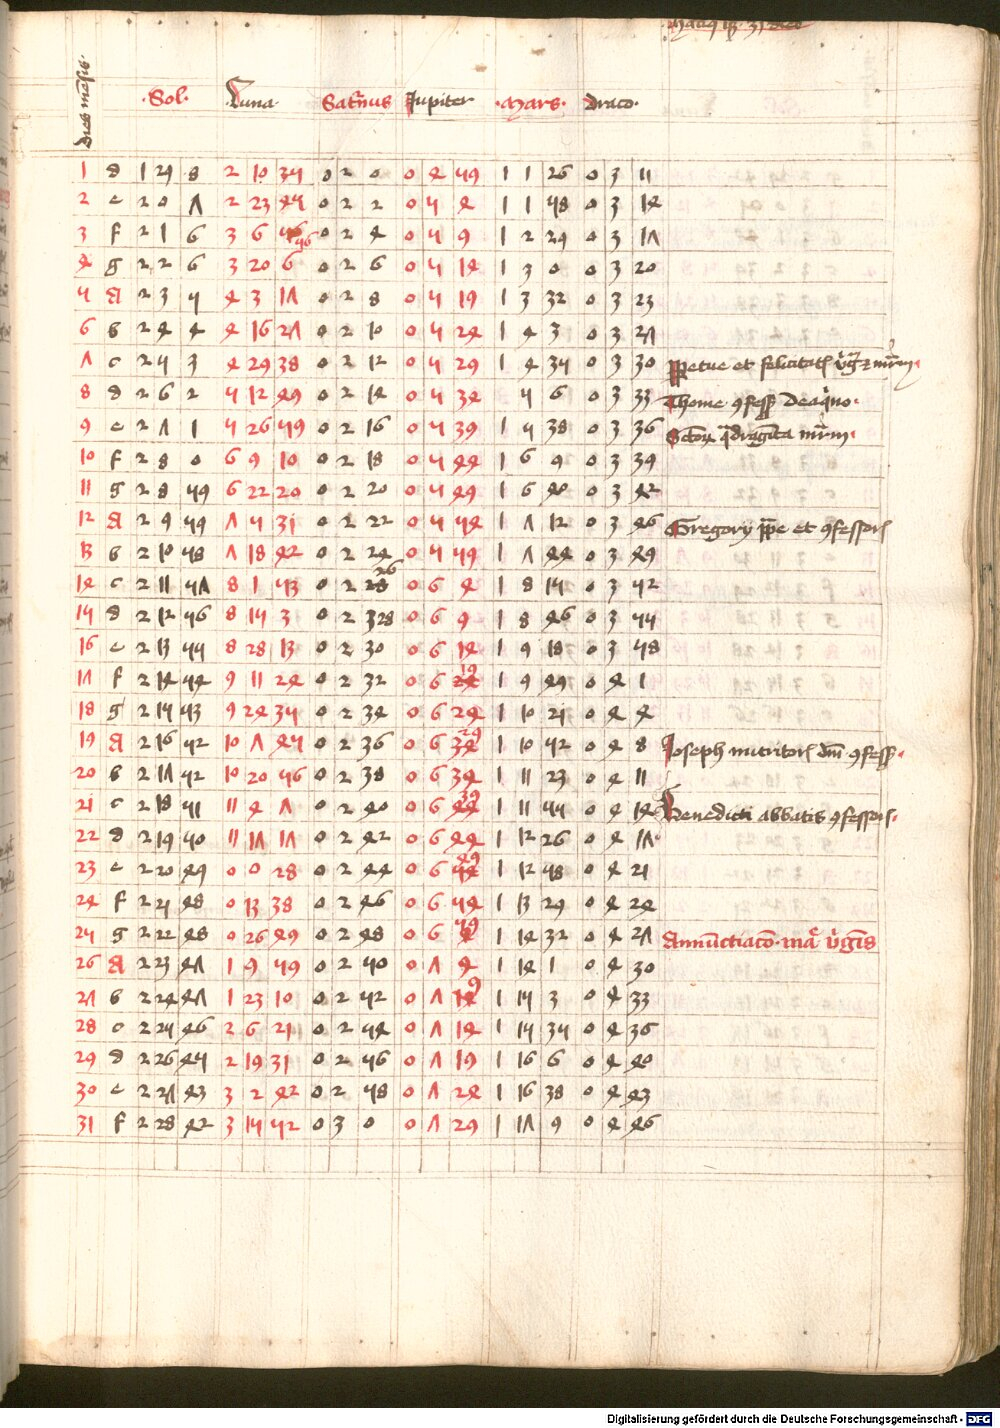 dies mẽsis·
·Sol· Luna· Satn̄us Jupiter ·Mars· Draco·
1 d 1 29 8 2 10 35 0 2 0 0 4 59 1 1 26 0 3 11
2 e 2 0 7 2 23 45 0 2 2 0 5 4 1 1 58 0 3 14
3 f 2 1 6 3 6 56 0 2 4 0 5 9 1 2 29 0 3 17
4 g 2 2 6 3 20 6 0 2 6 0 5 14 1 3 0 0 3 20
5 A 2 3 5 4 3 17 0 2 8 0 5 19 1 3 32 0 3 23
6 b 2 4 4 4 16 27 0 2 10 0 5 24 1 4 3 0 3 27
7 c 2 5 3 4 29 38 0 2 12 0 5 29 1 4 35 0 3 30 Ꝑpetue et felicitatꝭ
8 d 2 6 2 5 12 49 0 2 14 0 5 34 5 6 0 3 33 Thome ꝯfess̄ Deaq̾no·
9 e 2 7 1 5 26 59 0 2 16 0 5 39 1 5 38 0 3 36
10 f 2 8 0 6 9 10 0 2 18 0 5 44 1 6 9 0 3 39
11 g 2 8 59 6 22 20 0 2 20 0 5 49 1 6 40 0 3 42
12 A 2 9 59 7 5 31 0 2 22 0 5 54 1 7 12 0 3 46 Gregorij p̄pe et ꝯfessorꝭ
13 b 2 10 58 7 18 42 0 2 24 0 5 59 1 7 44 0 3 49
14 c 2 11 57 8 1 53 0 2 26 0 6 4 1 8 15 0 3 52
15 d 2 12 56 8 15 3 0 2 28 0 6 9 1 8 46 0 3 55
16 e 2 13 55 8 28 13 0 2 30 0 6 14 1 9 18 0 3 58
17 f 2 14 54 9 11 24 0 2 32 0 6 19 1 9 49 0 4 1
18 g 2 15 53 9 24 35 0 2 34 0 6 24 1 10 21 0 4 4
19 A 2 16 52 10 7 45 0 2 36 0 6 29 1 10 52 0 4 8 Joseph nutritorꝭ dm̄ ꝯfess̄·
20 b 2 17 52 10 20 56 0 2 38 0 6 34 1 11 23 0 4 11
21 c 2 18 51 11 4 7 0 2 40 0 6 39 1 11 55 0 4 14 Benedicti abbatis ꝯfessorꝭ·
22 d 2 19 50 11 17 17 0 2 42 0 6 44 1 12 26 0 4 17
23 e 2 20 49 0 0 28 0 2 44 0 6 49 1 12 58 0 4 21
24 f 2 21 48 0 13 38 0 2 46 0 6 54 1 13 29 0 4 24
25 g 2 22 48 0 26 49 0 2 48 0 6 59 1 14 32 0 4 27 Annūctiac̄o· mar̄ v̾gīs
26 A 2 23 47 1 9 59 0 2 50 0 7 4 1 14 1 0 4 30
27 b 2 24 47 1 23 10 0 2 52 0 7 9 1 15 3 0 4 33
28 c 2 25 46 2 6 21 0 2 54 0 7 14 1 15 35 0 4 36
29 d 2 26 45 2 19 31 0 2 56 0 7 19 1 16 6 0 4 40
30 e 2 27 43 3 2 42 0 2 58 0 7 24 1 16 38 0 4 43
31 f 2 28 42 3 15 52 0 3 0 0 7 29 1 17 9 0 4 46
Digitalisierung gefördert durch die Deutsche Forschungsgemeinschaft - DFG